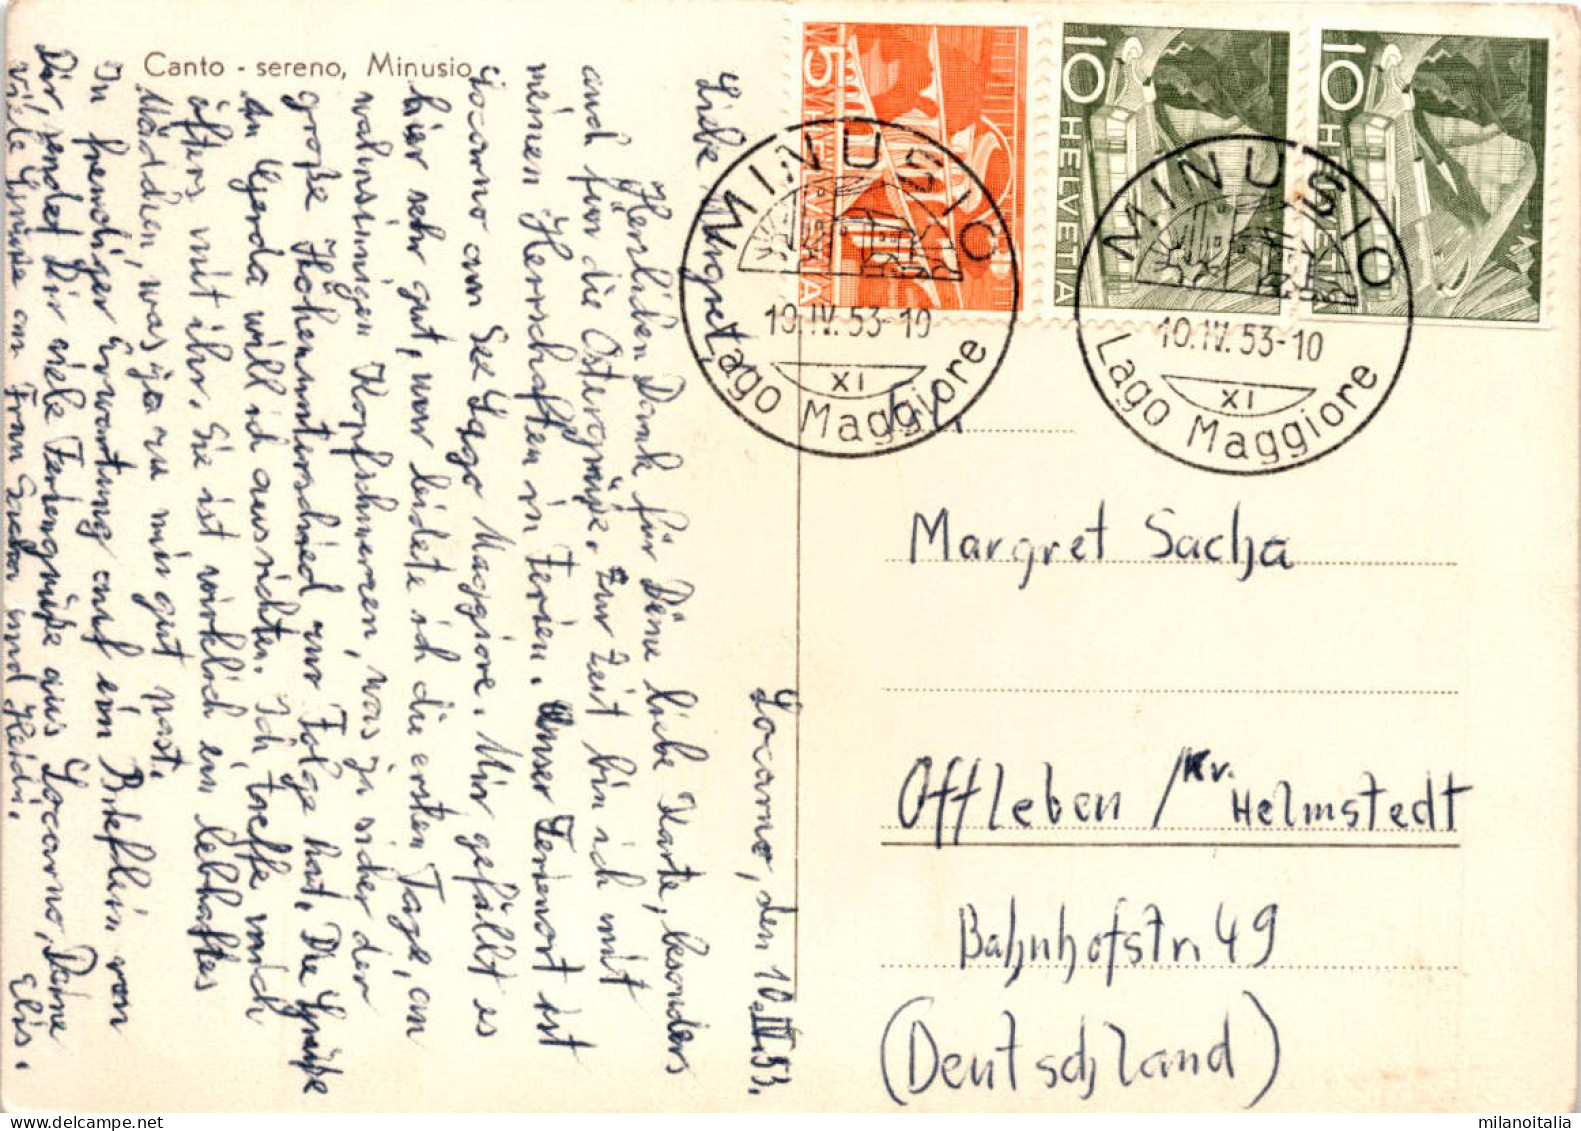 Canto - sereno, Minusio
Locarno, den 10.IV.53.
Liebe Margret,
Herzlichen Dank für Deine liebe Karte, besonders
auch für die Ostergrüße. Zur Zeit bin ich mit
meinen Herrschaften in Ferien. Unser Ferienort ist
Locarno am See Lago Maggiore. Mir gefällt es
hier sehr gut, nur leidete ich die ersten Tage, an
wahnsinnigen Kopfschmerzen, was ja sicher der
große Höhenunterschied zur Folge hat. Die Grüße
An Gerda will ich ausrichten. Ich treffe mich
öfters mit ihr. Sie ist wirklich ein lebhaftes
Mädchen, was ja zu mir gut past.
In freudiger Erwartung auf ein Brieflein von
Dir, sendet Dir viele Feriengrüße aus Loccarno, Deine
Viele Grüße an Frau Sacha und Heidi. Elis.
5 HELVETIA
10 HELVETIA
10 HELVETIA
MINUSIO
10.IV.53-10
XI
Lago Maggiore
MINUSIO
10.IV.53-10
XI
Lago Maggiore
Margret Sacha
Offleben / Kr. Helmstedt
Bahnhofstr 49
(Deutschland)
milanoitalia